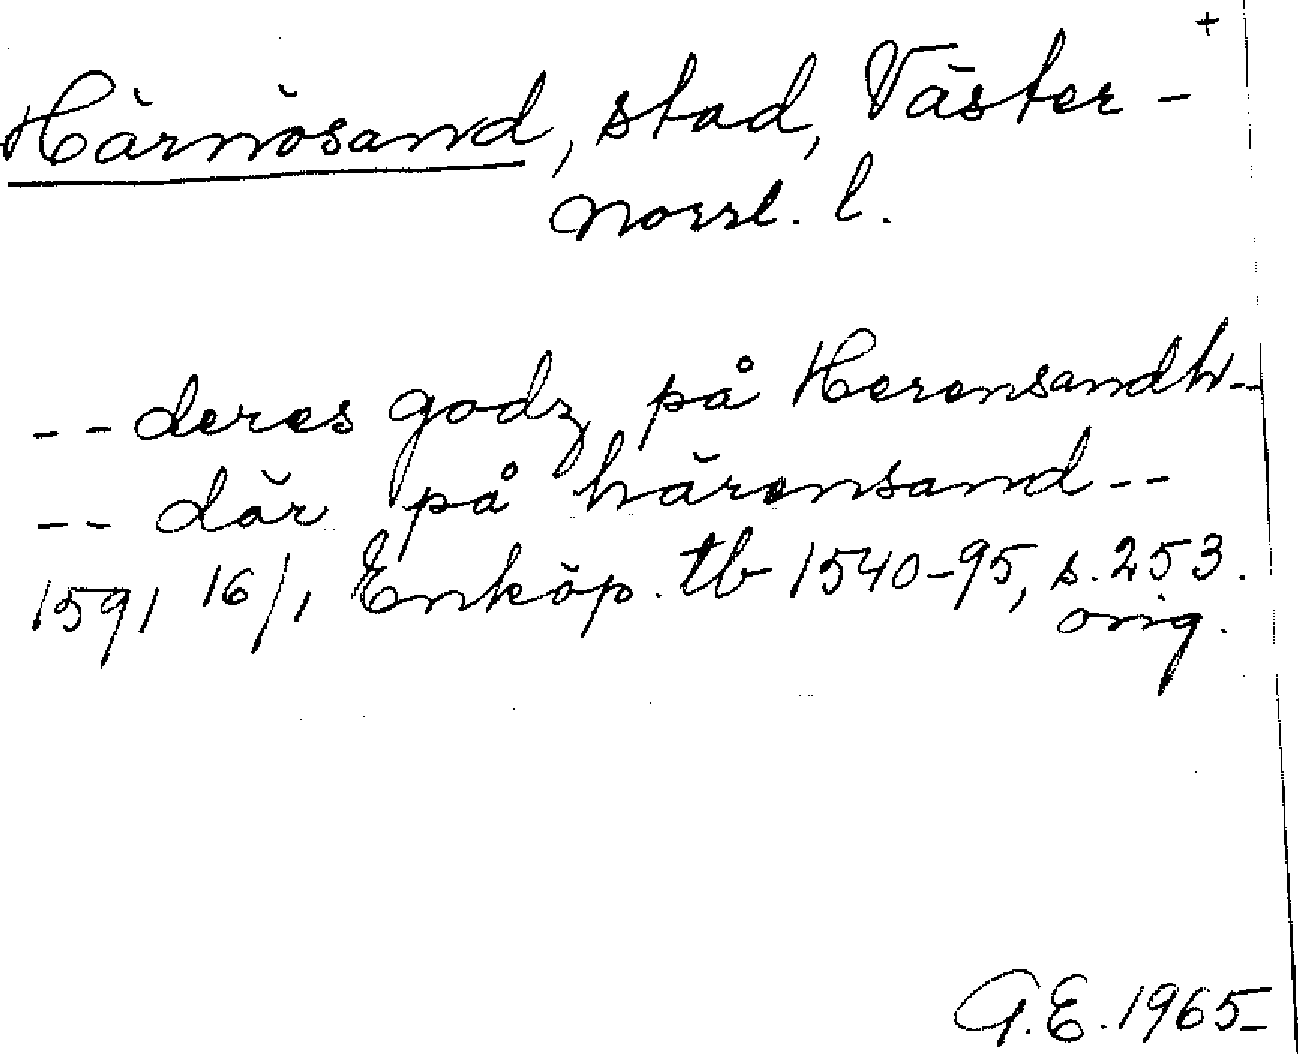 +
Härnösand, stad, Väster-
norrl. l.
-- deres godz på Herensandh--
-- där på härensand --
1591 16/1 Enköp. tb 1540-95, s. 253.
orig.
G.E. 1965